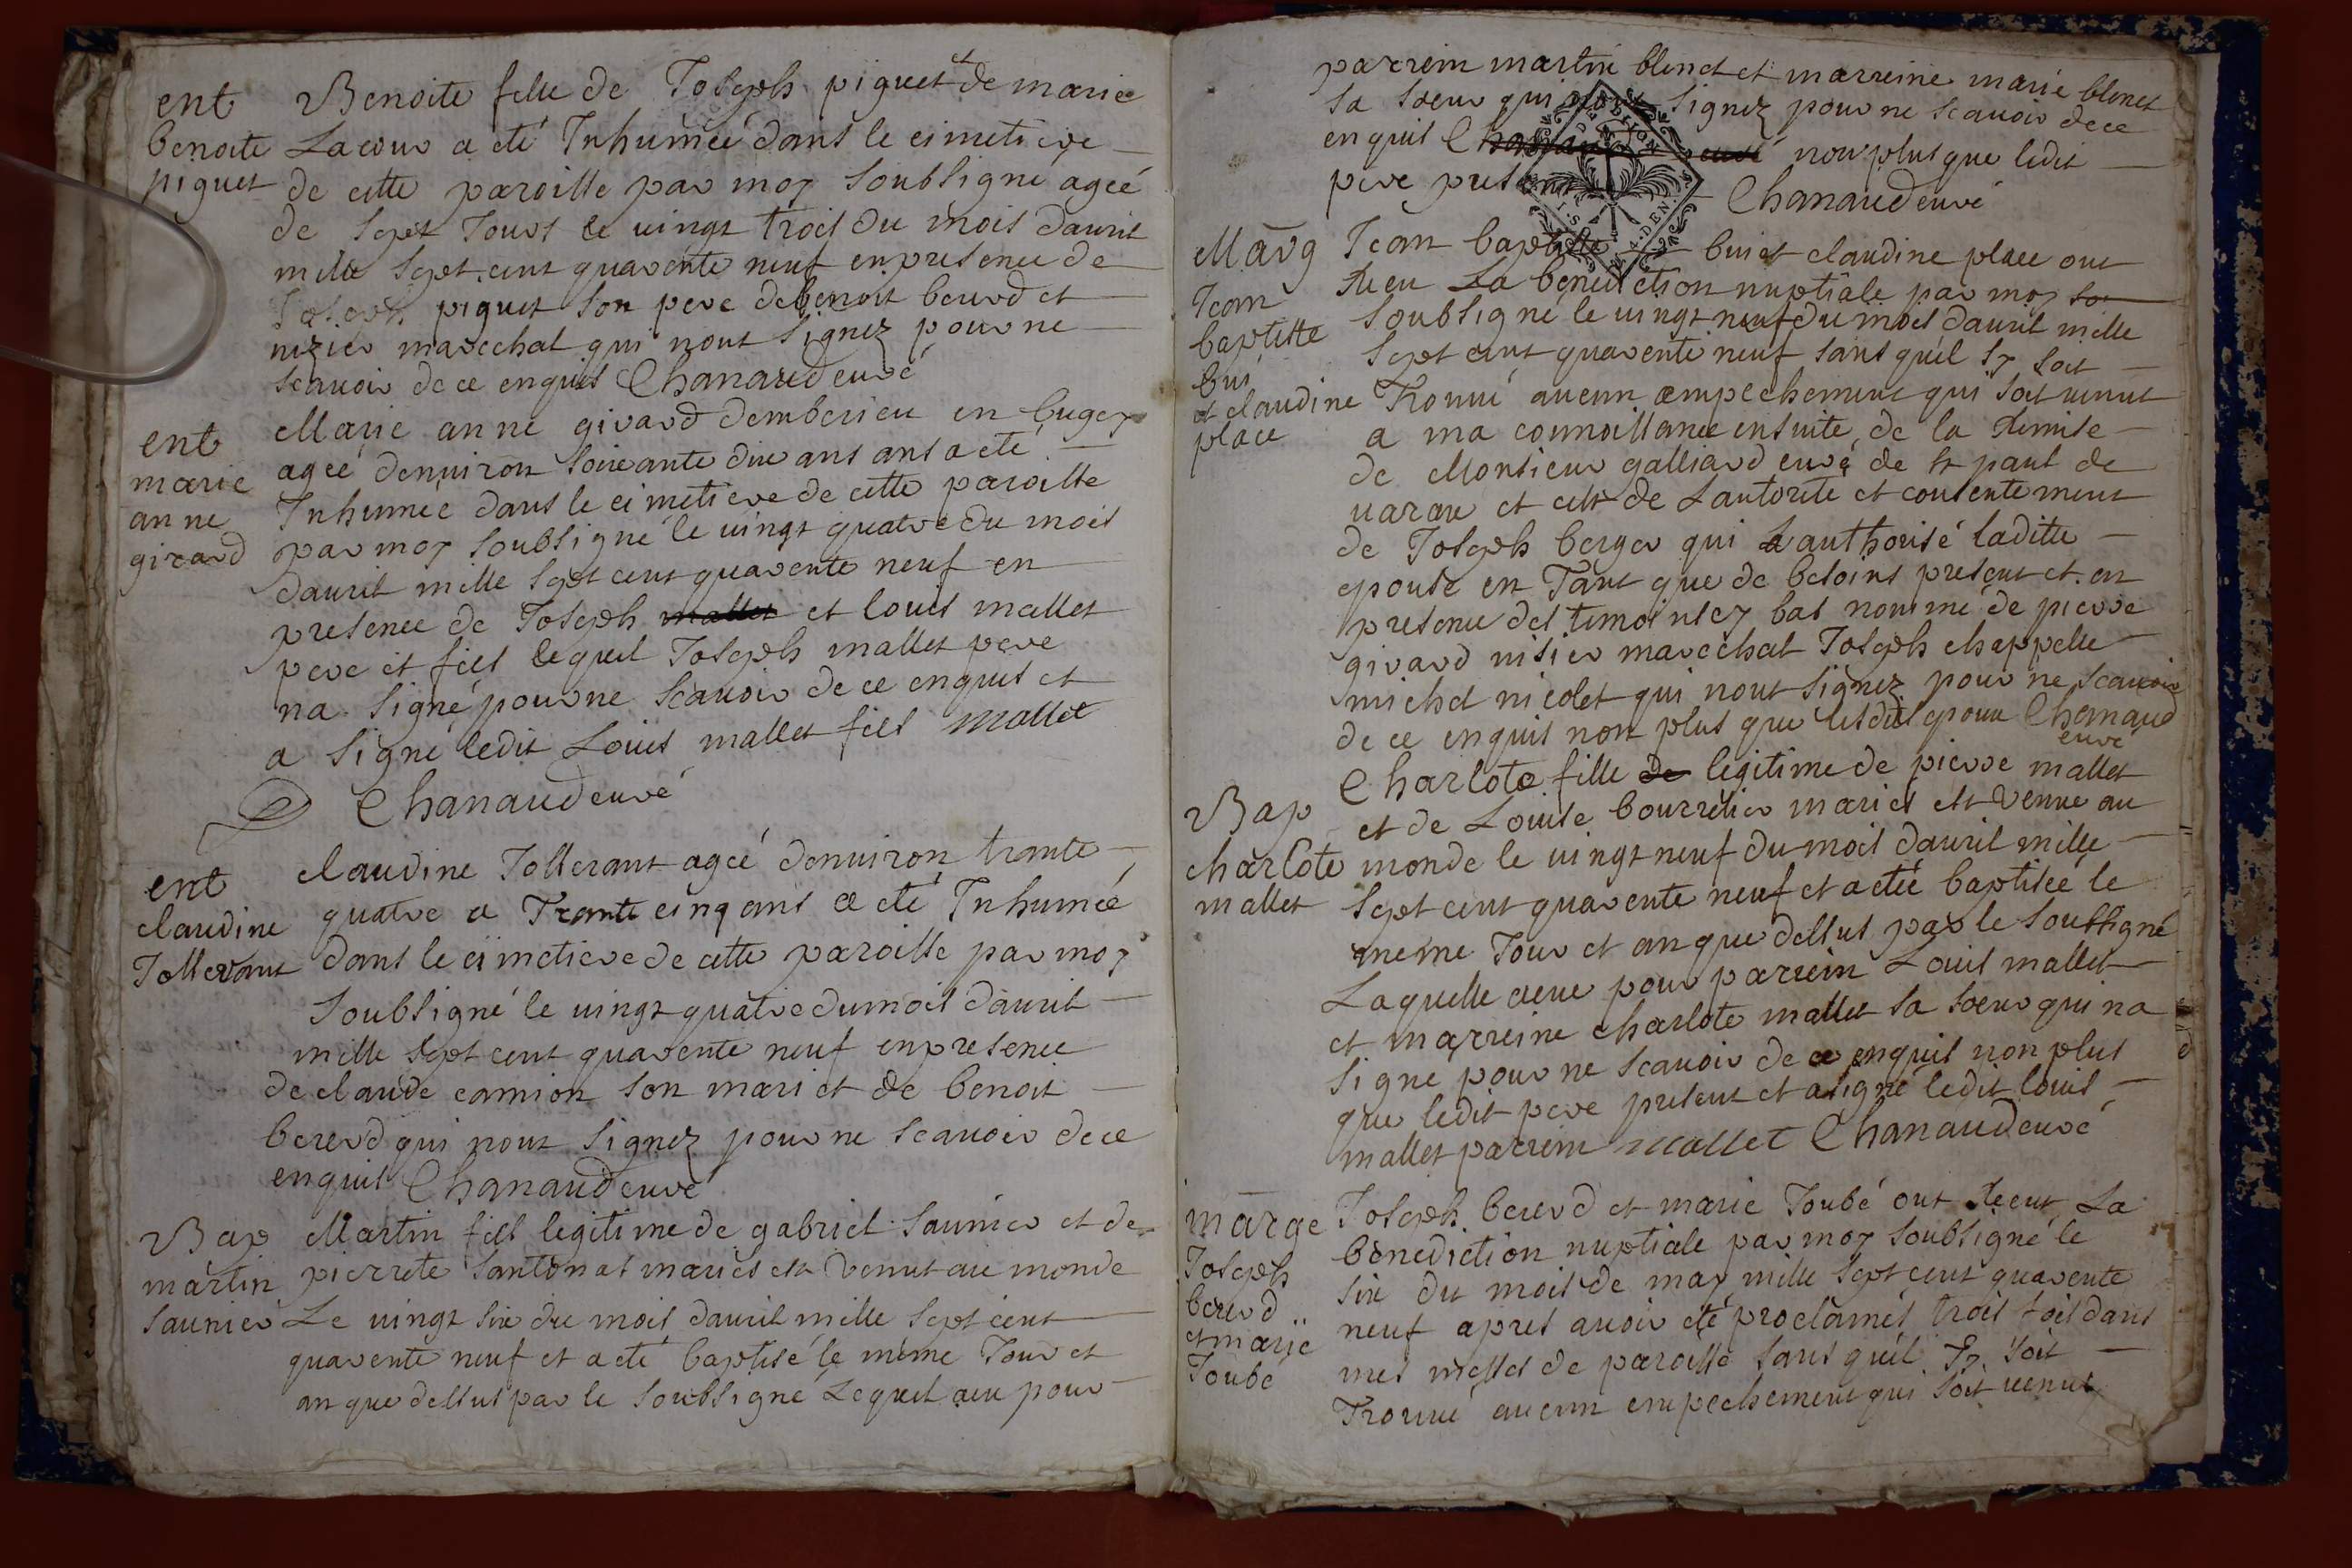 ent
benoite
piguet
Benoite fille de Joseph piguet et de marie
Lacour a eté Inhumeé dans le cimetiere
de cette paroisse par moy soubsigné ageé
de sept Jours le vingt trois du mois davril
mille sept cent quarente neuf en presence de
Joseph piguet son pere de benoit beurd et
nizier marechal qui nont signez pour ne
scavoir de ce enquis Chanaud curé
ent
marie
anne
girard
Marie anne girard demberieu en bugey
ageé denviron soixante dix ans ans a eté
Inhumée dans le cimetiere de cette paroisse
par moy soubsigné le vingt quatre du mois
davril mille sept cent quarente neuf en
presence de Joseph mallet et louis mallet
pere et fils lequel Joseph mallet pere
na signé pour ne scavoir de ce enquis et
a signé ledit Louis mallet fils mallet
Chanaud curé
ent
claudine
Jollerant
claudine Jollerant ageé denviron trante
quatre a Trante cinq ans a eté Inhumeé
dans le cimetiere de cette paroisse par moy
soubsigné le vingt quatre du mois davril
mille sept cent quarente neuf en presence
de claude camion son mari et de benoit
bererd qui nont signez pour ne scavoir de ce
enquis Chanaud curé
Bap
martin
saunier
Martin fils legitime de gabriel saunier et de
pierrete santonas mariés est venut au monde
Le vingt six du mois davril mille sept cent
quarente neuf et a eté baptisé le même Jour et
an que dessus par le soubsigné Lequel a eu pour
parrein martin blenet et marreine marie blenet
sa soeur qui nont signez pour ne scavoir de ce
enquis curé non plus que ledit
pere present Chanaud curé
DE DIJON
4. DEN.
Marg
Jean
baptiste
bui
et claudine
place
Jean baptiste bui et claudine place ont
Receu La benediction nuptiale par moy so
soubsigné le vingt neuf du mois davril mille
sept cent quarente neuf sans quil sy soit
Trouvé aucun empechement qui soit venut
a ma connoissance ensuite de la Remise
de Monsieur galliard curé de st paul de
varax et cest de Lautorité et consentement
de Joseph berger qui a authorisé laditte
epouse en Tant que de besoins present et en
presence des temoins cy bas nommé de pierre
girard nisier marechal Joseph chappelle
michel nicolet qui nont signez pour ne scavoir
de ce enquis non plus que lesdits epoux Chanaud
curé
Bap
charlote
mallet
Charlote fille de legitime de pierre mallet
et de Louise bourrelier mariés est venue au
monde le vingt neuf du mois davril mille
sept cent quarente neuf et a eteé baptiseé le
meme Jour et an que dessus par le soubsigné
Laquelle a eue pour parrein Louis mallet
et marreine charlote mallet sa soeur qui na
signé pour ne scavoir de ce enquis non plus
que ledit pere present et a signé ledit louis
mallet parrein mallet Chanaud curé
marge
Joseph
bererd
et marie
Joubé
Joseph bererd et marie Joubé ont Receut La
benediction nuptiale par moy soubsigné le
six du mois de may mille sept cent quarente
neuf apres avoir eté proclamés trois fois dans
mes messes de paroisse sans quil sy soit
Trouvé aucun empechement qui soit venut